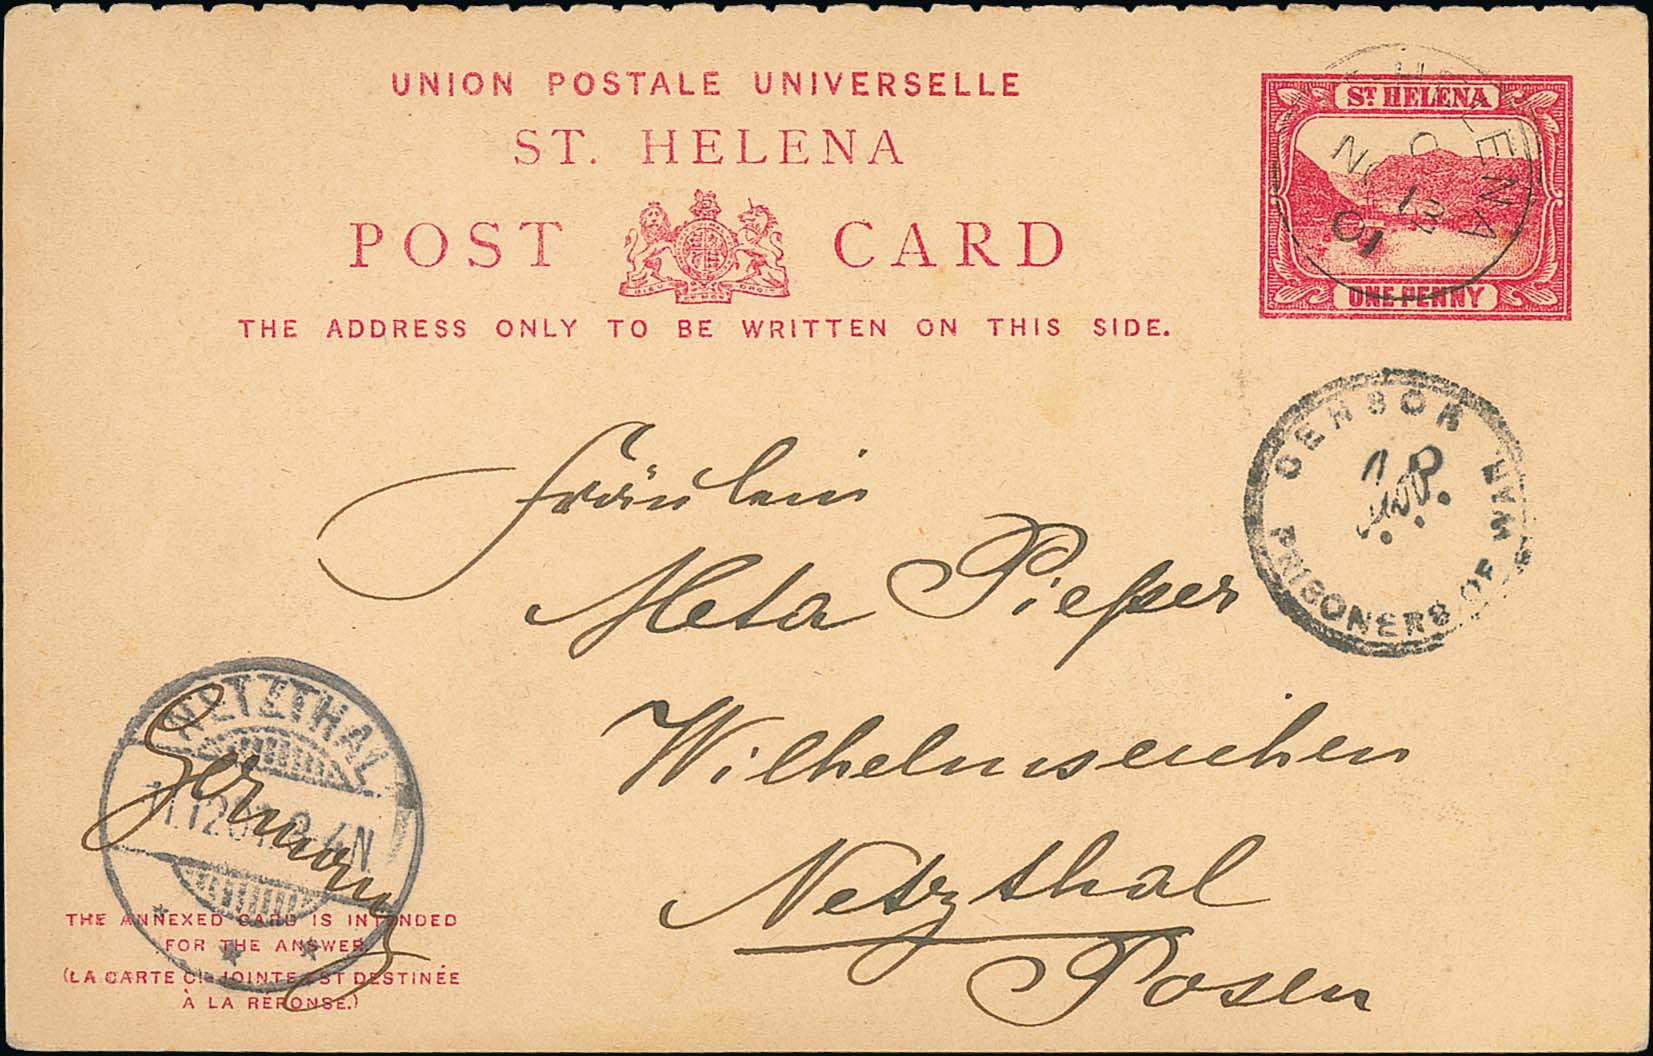 UNION POSTALE UNIVERSELLE
ST. HELENA
POST CARD
THE ADDRESS ONLY TO BE WRITTEN ON THIS SIDE.
ST HELENA
ONE PENNY
HELENA
C
NO 13
01
CENSOR
PRISONERS OF WAR
Fräulein
Meta Pieper
Wilhelmseichen
Netzthal
Posen
Germany
NETZTHAL
THE ANNEXED CARD IS INTENDED
FOR THE ANSWER.
(LA CARTE CI-JOINTE EST DESTINÉE
À LA RÉPONSE.)